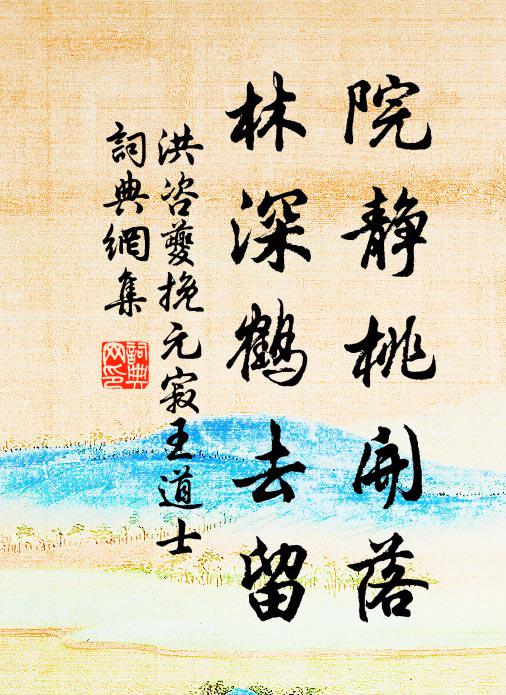 院静桃開落
林深鶴去留
洪咨夔挽元寂王道士
詞典網集
詞典
网印